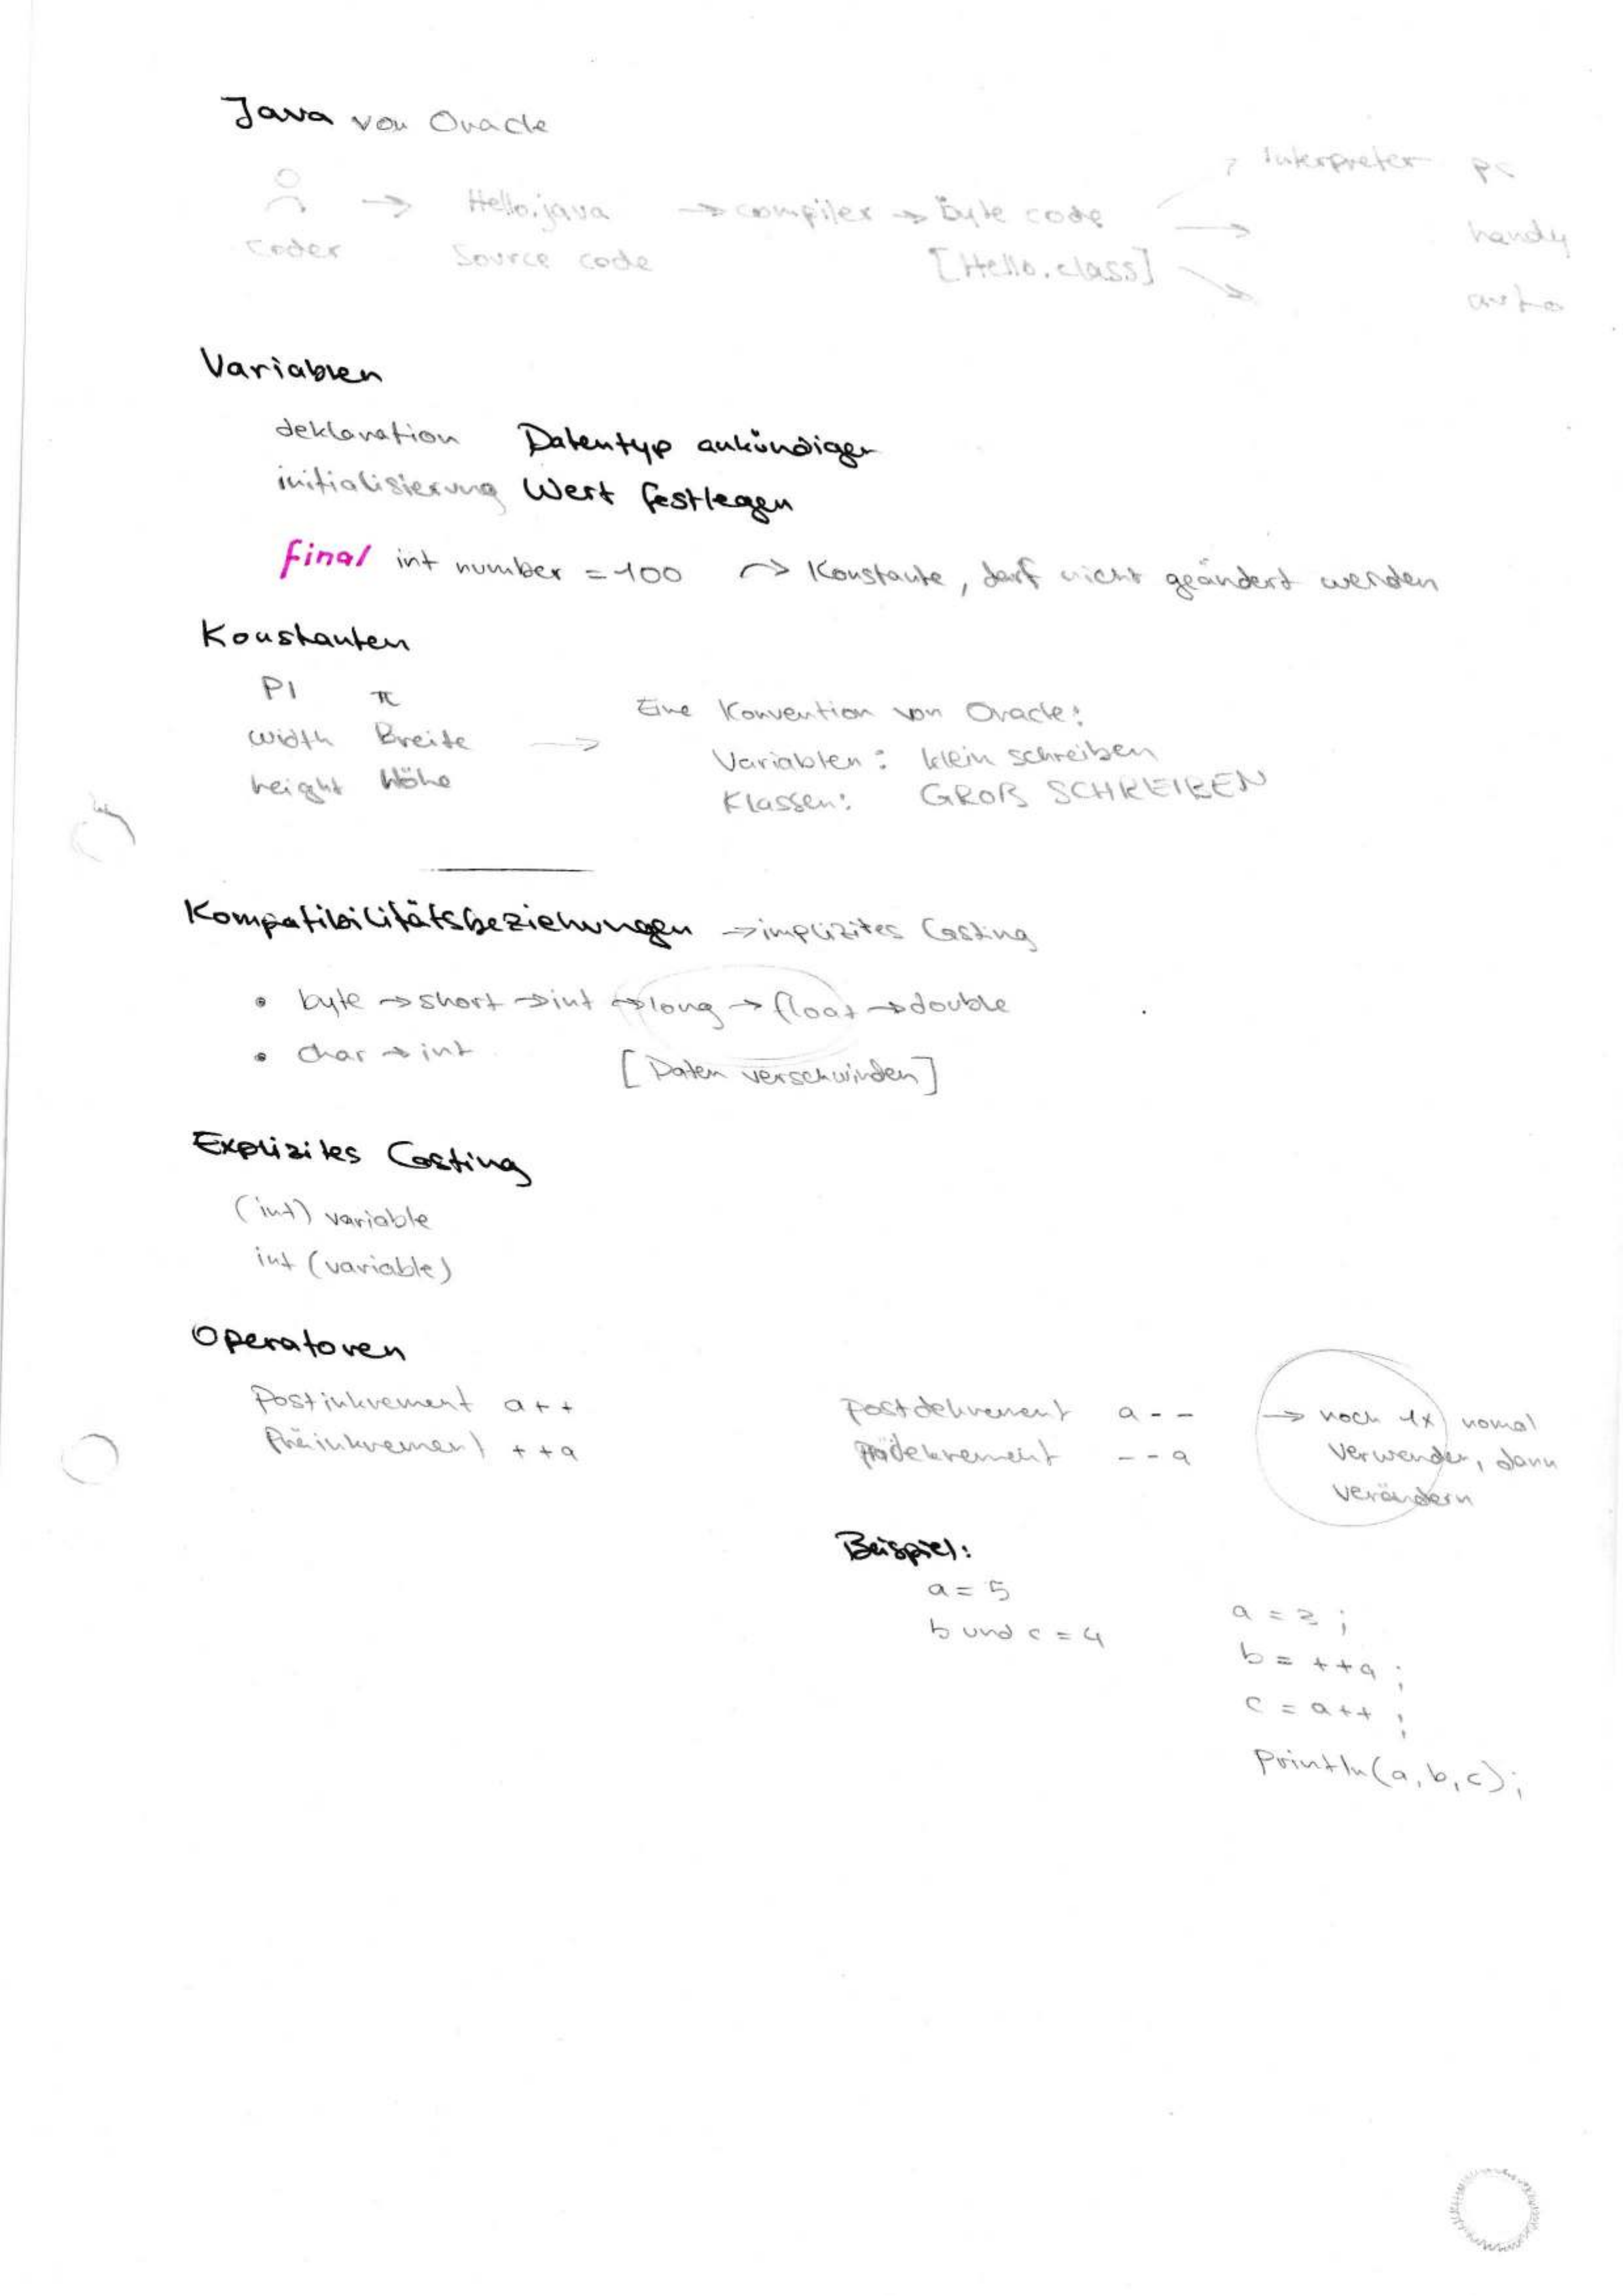 Java von Oracle
Interpreter pc
→ Hello.java → compiler → Byte code → handy
coder Source code [Hello.class] auto
Variablen
deklaration Datentyp ankündigen
initialisierung Wert festlegen
final int number = 100 → Konstante, darf nicht geändert werden
Konstanten
PI π
width Breite → Eine Konvention von Oracle:
height Höhe Variablen: klein schreiben
Klassen: GROß SCHREIBEN
Kompatibilitätsbeziehungen → implizites Casting
• byte → short → int → long → float → double
• char → int [Daten verschwinden]
Explizites Casting
(int) variable
int (variable)
Operatoren
Postinkrement a++ Postdekrement a-- → noch 1x nomal
Präinkrement ++a Prädekrement --a verwenden, dann
verändern
Beispiel:
a = 5
b und c = 4
a = 3;
b = ++a;
c = a++;
println(a,b,c);